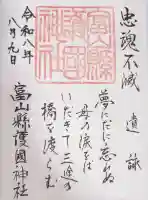 忠魂不滅
遺詠
夢にだに忘れぬ
母の涙をは
いだきて三途の
橋を渡らむ
富山縣護國神社
令和八年
八月九日
富山縣
護國神
社